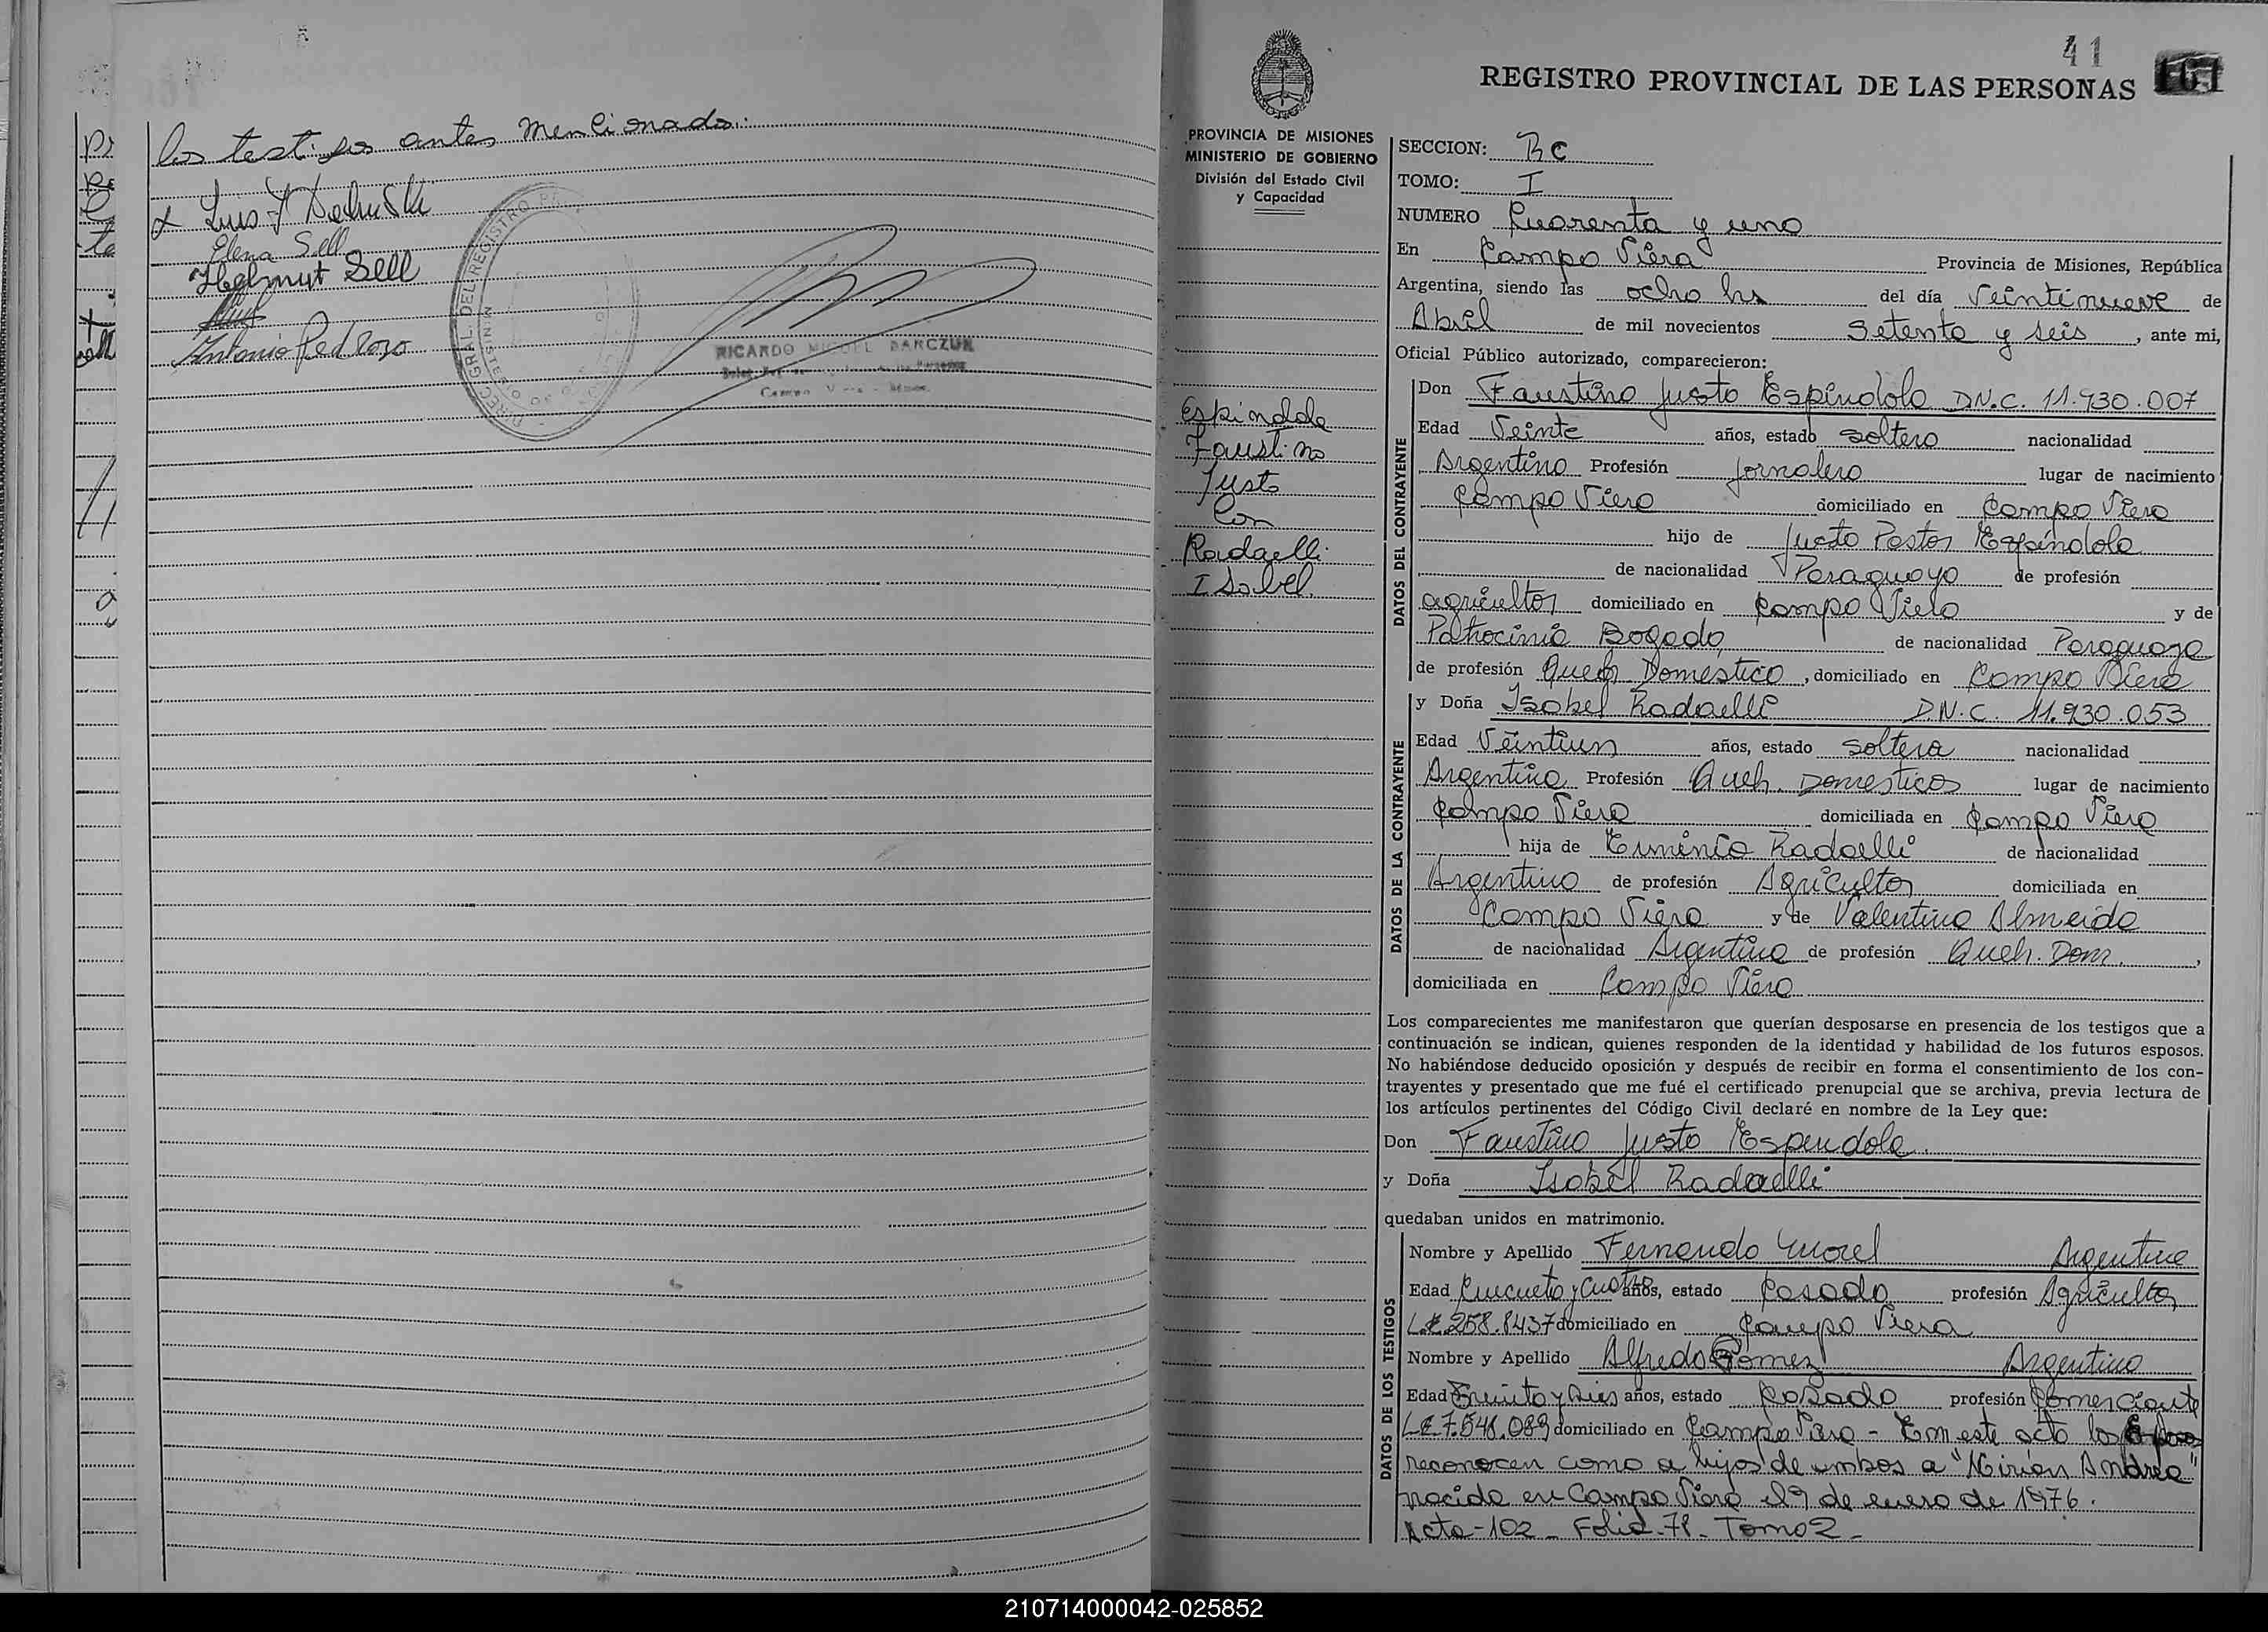 los testigos antes mencionado.
Luis
Elena Sell
Helmut Sell
Antonio Pedrozo
RICARDO MIGUEL BARCZUK
41
161
REGISTRO PROVINCIAL DE LAS PERSONAS
PROVINCIA DE MISIONES
MINISTERIO DE GOBIERNO
División del Estado Civil
y Capacidad
Espindola
Faustino
Justo
Con
Radaelli
Isabel.
SECCION: Bc
TOMO: I
NUMERO Cuarenta y uno
En Campo Viera Provincia de Misiones, República
Argentina, siendo las ocho hs del día Veintinueve de
Abril de mil novecientos Setenta y seis, ante mi,
Oficial Público autorizado, comparecieron:
DATOS DEL CONTRAYENTE
Don Faustino Justo Espindola DN.C. 11.930.007
Edad Veinte años, estado soltero nacionalidad
Argentino Profesión Jornalero lugar de nacimiento
Campo Viera domiciliado en Campo Viera
hijo de Justo Pastor Espindola
de nacionalidad Paraguayo de profesión
agricultor domiciliado en Campo Viera y de
Patrocinia Bogado, de nacionalidad Paraguaya
de profesión Queh Domestico, domiciliado en Campo Viera
DATOS DE LA CONTRAYENTE
y Doña Isabel Radaelli D.N.C. 11.930.053
Edad Veintiun años, estado soltera nacionalidad
Argentina Profesión Queh. Domesticos lugar de nacimiento
Campo Viera domiciliada en Campo Viera
hija de Erminio Radaelli de nacionalidad
Argentino de profesión Agricultor domiciliada en
Campo Viera y de Valentina Almeida
de nacionalidad Argentina de profesión Queh. Dom.,
domiciliada en Campo Viera
Los comparecientes me manifestaron que querían desposarse en presencia de los testigos que a
continuación se indican, quienes responden de la identidad y habilidad de los futuros esposos.
No habiéndose deducido oposición y después de recibir en forma el consentimiento de los con-
trayentes y presentado que me fué el certificado prenupcial que se archiva, previa lectura de
los artículos pertinentes del Código Civil declaré en nombre de la Ley que:
Don Faustino Justo Espindola.
y Doña Isabel Radaelli
quedaban unidos en matrimonio.
DATOS DE LOS TESTIGOS
Nombre y Apellido Fernando Morel Argentino
Edad Cincuenta y cuatro años, estado Casado profesión Agricultor
L.E. 258.8437 domiciliado en Campo Viera
Nombre y Apellido Alfredo Gomez Argentino
Edad Treinta y seis años, estado Casado profesión Comerciante
LE 7.548.089 domiciliado en Campo Viera - En este acto los
reconocen como a hijos de ambos a "Mirian Andrea"
nacida en Campo Viera el 9 de enero de 1976.
Acta-102 - Folio-78- Tomo 2-
210714000042-025852